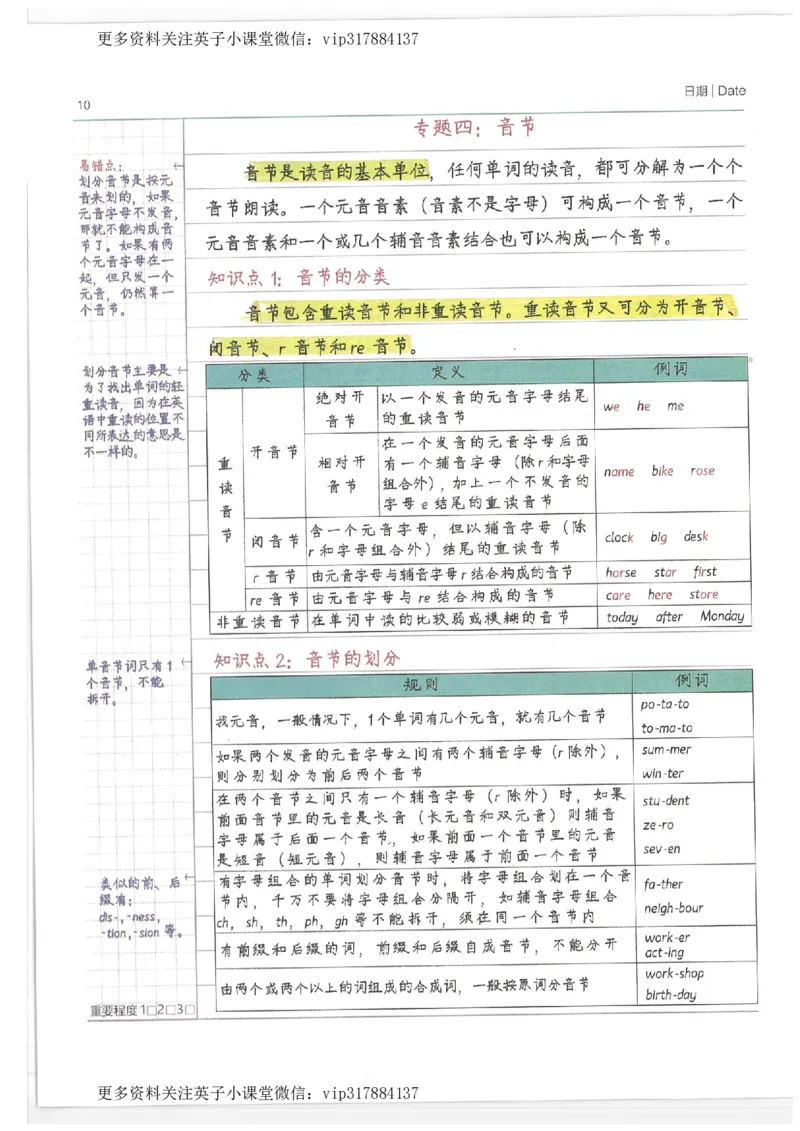 更多资料关注英子小课堂微信：vip317884137
日期 | Date
10
专题四：音节
易错点：
划分音节是按元
音来划的，如果
元音字母不发音，
那就不能构成音
节了。如果有两
个元音字母在一
起，但只发一个
元音，仍然算一
个音节。
音节是读音的基本单位，任何单词的读音，都可分解为一个个
音节朗读。一个元音音素（音素不是字母）可构成一个音节，一个
元音音素和一个或几个辅音音素结合也可以构成一个音节。
知识点 1：音节的分类
音节包含重读音节和非重读音节。重读音节又可分为开音节、
闭音节、r 音节和 re 音节。
划分音节主要是
为了找出单词的轻
重读音，因为在英
语中重读的位置不
同所表达的意思是
不一样的。
分类 定义 例词
重读音节
开音节
绝对开
音节
以一个发音的元音字母结尾
的重读音节
we he me
相对开
音节
在一个发音的元音字母后面
有一个辅音字母（除r和字母
组合外），加上一个不发音的
字母 e 结尾的重读音节
name bike rose
闭音节
含一个元音字母，但以辅音字母（除
r 和字母组合外）结尾的重读音节
clock big desk
r 音节 由元音字母与辅音字母r结合构成的音节 horse star first
re 音节 由元音字母与 re 结合构成的音节 care here store
非重读音节 在单词中读的比较弱或模糊的音节 today after Monday
知识点 2：音节的划分
单音节词只有1
个音节，不能
拆开。
规则 例词
找元音，一般情况下，1个单词有几个元音，就有几个音节
po-ta-to
to-ma-to
如果两个发音的元音字母之间有两个辅音字母（r 除外），
则分别划分为前后两个音节
sum-mer
win-ter
在两个音节之间只有一个辅音字母（r 除外）时，如果
前面音节里的元音是长音（长元音和双元音）则辅音
字母属于后面一个音节。如果前面一个音节里的元音
是短音（短元音），则辅音字母属于前面一个音节
stu-dent
ze-ro
sev-en
类似的前、后
缀有：
dis-，-ness，
-tion，-sion 等。
有字母组合的单词划分音节时，将字母组合划在一个音
节内，千万不要将字母组合分隔开，如辅音字母组合
ch，sh，th，ph，gh 等不能拆开，须在同一个音节内
fa-ther
neigh-bour
有前缀和后缀的词，前缀和后缀自成音节，不能分开
work-er
act-ing
由两个或两个以上的词组成的合成词，一般按原词分音节
work-shop
birth-day
重要程度 1□2□3□
更多资料关注英子小课堂微信：vip317884137